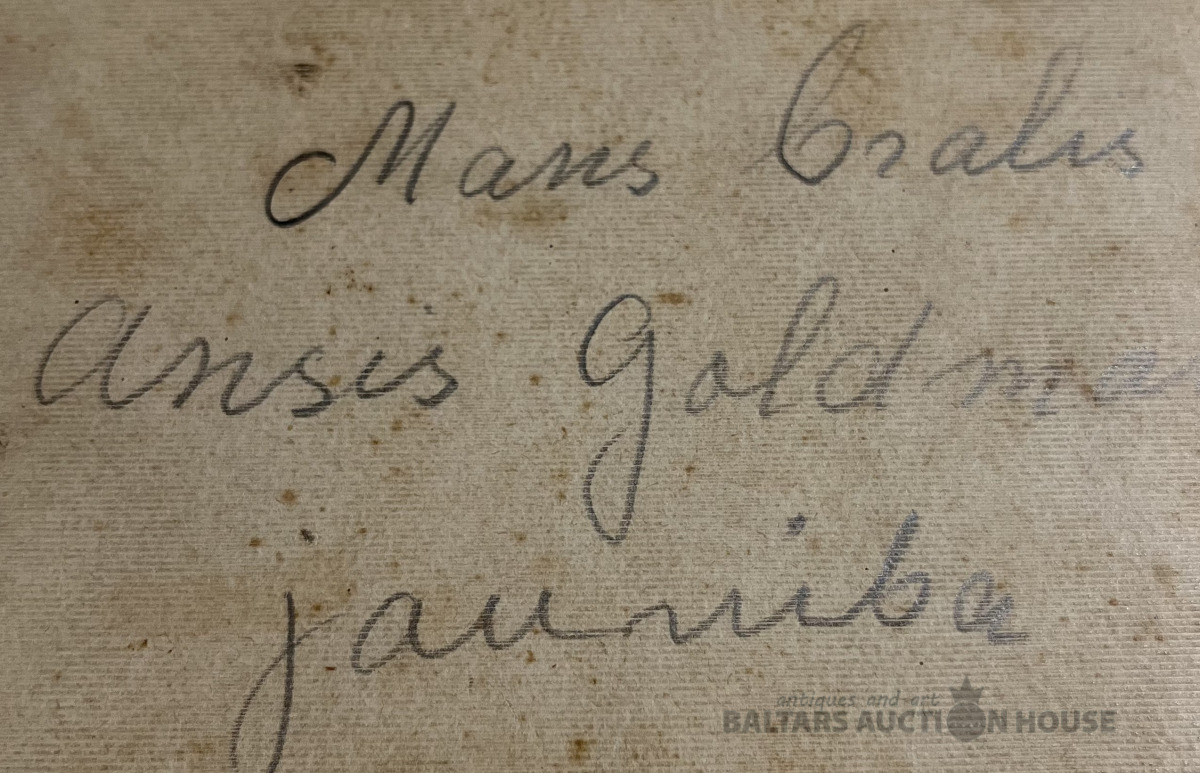 Mans Bralis
Ansis Goldma
jauniba
antiques and art
BALTARS AUCTION HOUSE